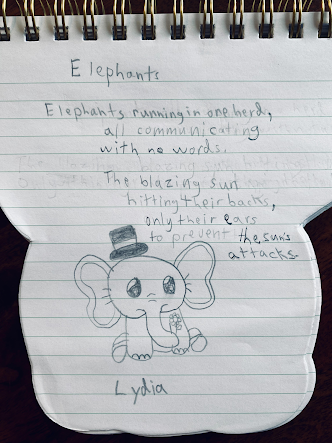 Elephants
Elephants running in one herd,
all communicating
with no words.
The blazing sun
hitting their backs,
only their ears
to prevent the sun's
attacks.
Lydia